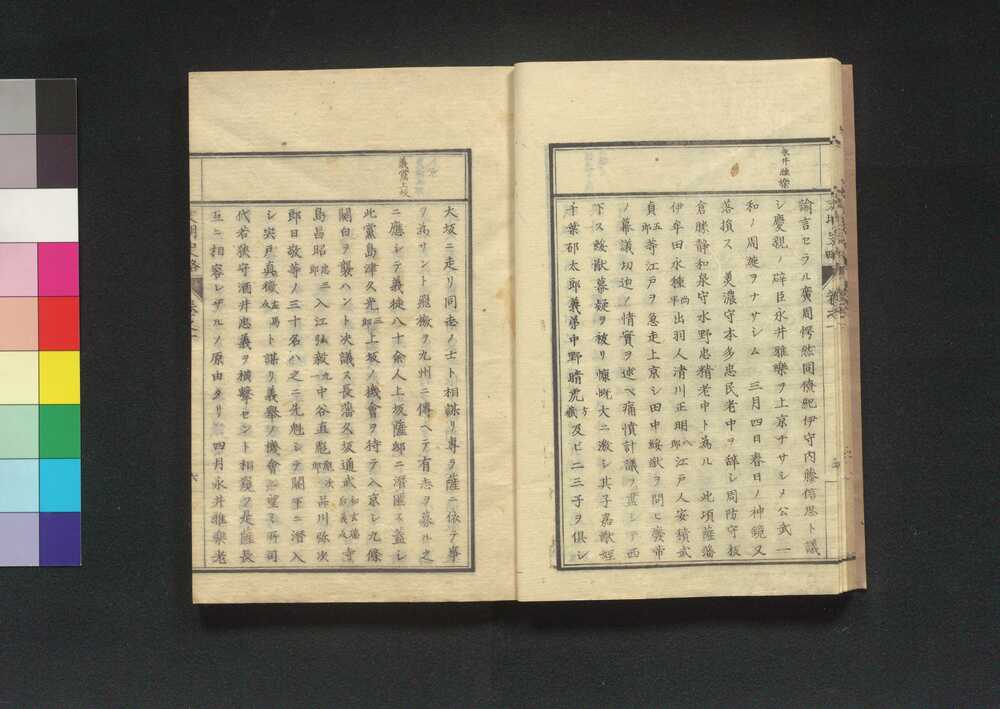 永井雅樂
諭言セラル廣周愕然同僚紀伊守内藤信思ト議
シ慶親ノ辟臣永井雅樂ヲ上京ササシメ公武一
和ノ周旋ヲナサシム 三月四日春日ノ神鏡又
落損ス 美濃守本多忠民老中ヲ辞シ周防守板
倉勝静和泉守水野忠精老中ト為ル 此項薩藩
伊牟田永種尚平出羽人清川正明八郎江戸人安積武
貞五郎等江戸ヲ急走上京シ田中綏猷ヲ問ヒ癈帝
ノ幕議切迫ノ情實ヲ述ベ痛憤計議ヲ盡シテ西
下ス綏猷幕疑ヲ被リ慷慨大ニ激シ其子嘉猷姪
千葉郁太郎義弟中野晴虎方蔵及ビ二三子ヲ倶シ
義黨上坂
大坂ニ走リ同志ノ士ト相謀リ専ラ薩ニ依テ事
ヲ為サント飛檄ヲ九州ニ傳ヘテ有志ヲ募ル之
ニ應シテ義徒八十余人上坂薩邸ニ潜匿ス蓋シ
此黨島津久光三郎上坂ノ機會ヲ待テ入京シ九條
關白ヲ襲ハント次議ス長藩久坂通武和玄瑞後義助寺
島昌昭忠三郎入江弘毅九一中谷直彪次郎品川弥次
郎日敬等ノ三十名ハ之ニ先魁シテ闕下ニ潜入
シ宍戸真澂左馬介ト謀リ義擧ノ機會ヲ望ミ所司
代若狭守酒井忠義ヲ横撃セント相窺フ是薩長
互ニ相容レザルノ原由タリ 四月永井雅樂老
六